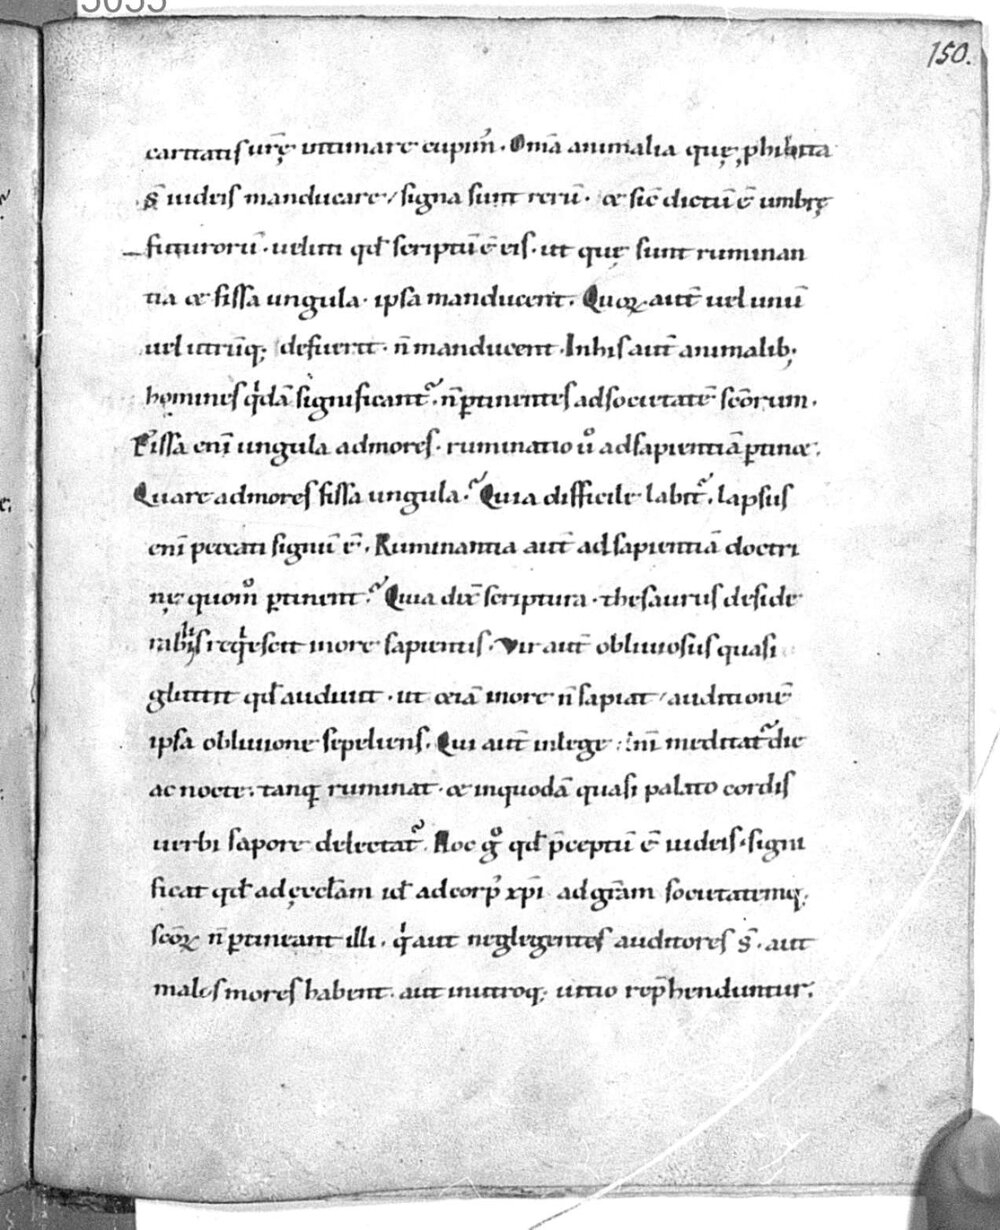 5055
150.
caritati sur̄ę uitimare cupim᾽. Om̄a animalia quę ꝓhibita
s̄ iudeis manducare / signa sunt rerū. & sic̄ dictū ē umbrę
futurorū. ueluti qd̄ scriptū ē eis. ut quę sunt ruminan
tia & fissa ungula. ipsa manducent. Quoꝝ aut̄ uel unū
uel utrūq; defuerit. n̄ manducent. In his aut̄ animalib;
homines qͥdā significant᷑. n̄ ꝑtinentes ad societatē sc̄orum.
Fissa eni᷑ ungula ad mores. ruminatio u͛o ad sapientiā ꝑtin&.
Quare ad mores fissa ungula.᷉ Quia difficile labit᷑. lapsus
eni᷑ peccati signū ē. Ruminantia aut̄ ad sapientiā doctri
nę quom̊ ꝑtinent.᷉ Quia dix̄ scriptura. thesaurus deside
rabilis reqͥescit in ore sapientis. Vir aut̄ obliuiosus quasi
gluttit qd̄ audiuit. ut &iā in ore n̄ sapiat / auditionē
ipsa obliuione sepeliens. Qui aut̄ in lege dn̄i meditat᷑ die
ac nocte. tanq̄ ruminat. & in quodā quasi palato cordis
uerbi sapore delectat᷑. Hoc gͦ qd̄ p̄ceptū ē iudeis. signi
ficat qd̄ ad ęccl̄am id̄ ad corp᾽ xp̄i ad gr̄am societatemq;
sc̄oꝝ n̄ ꝑtineant illi. qͥ aut neglegentes auditores s̄. aut
malos mores habent. aut in utroq; uitio rep̄henduntur.